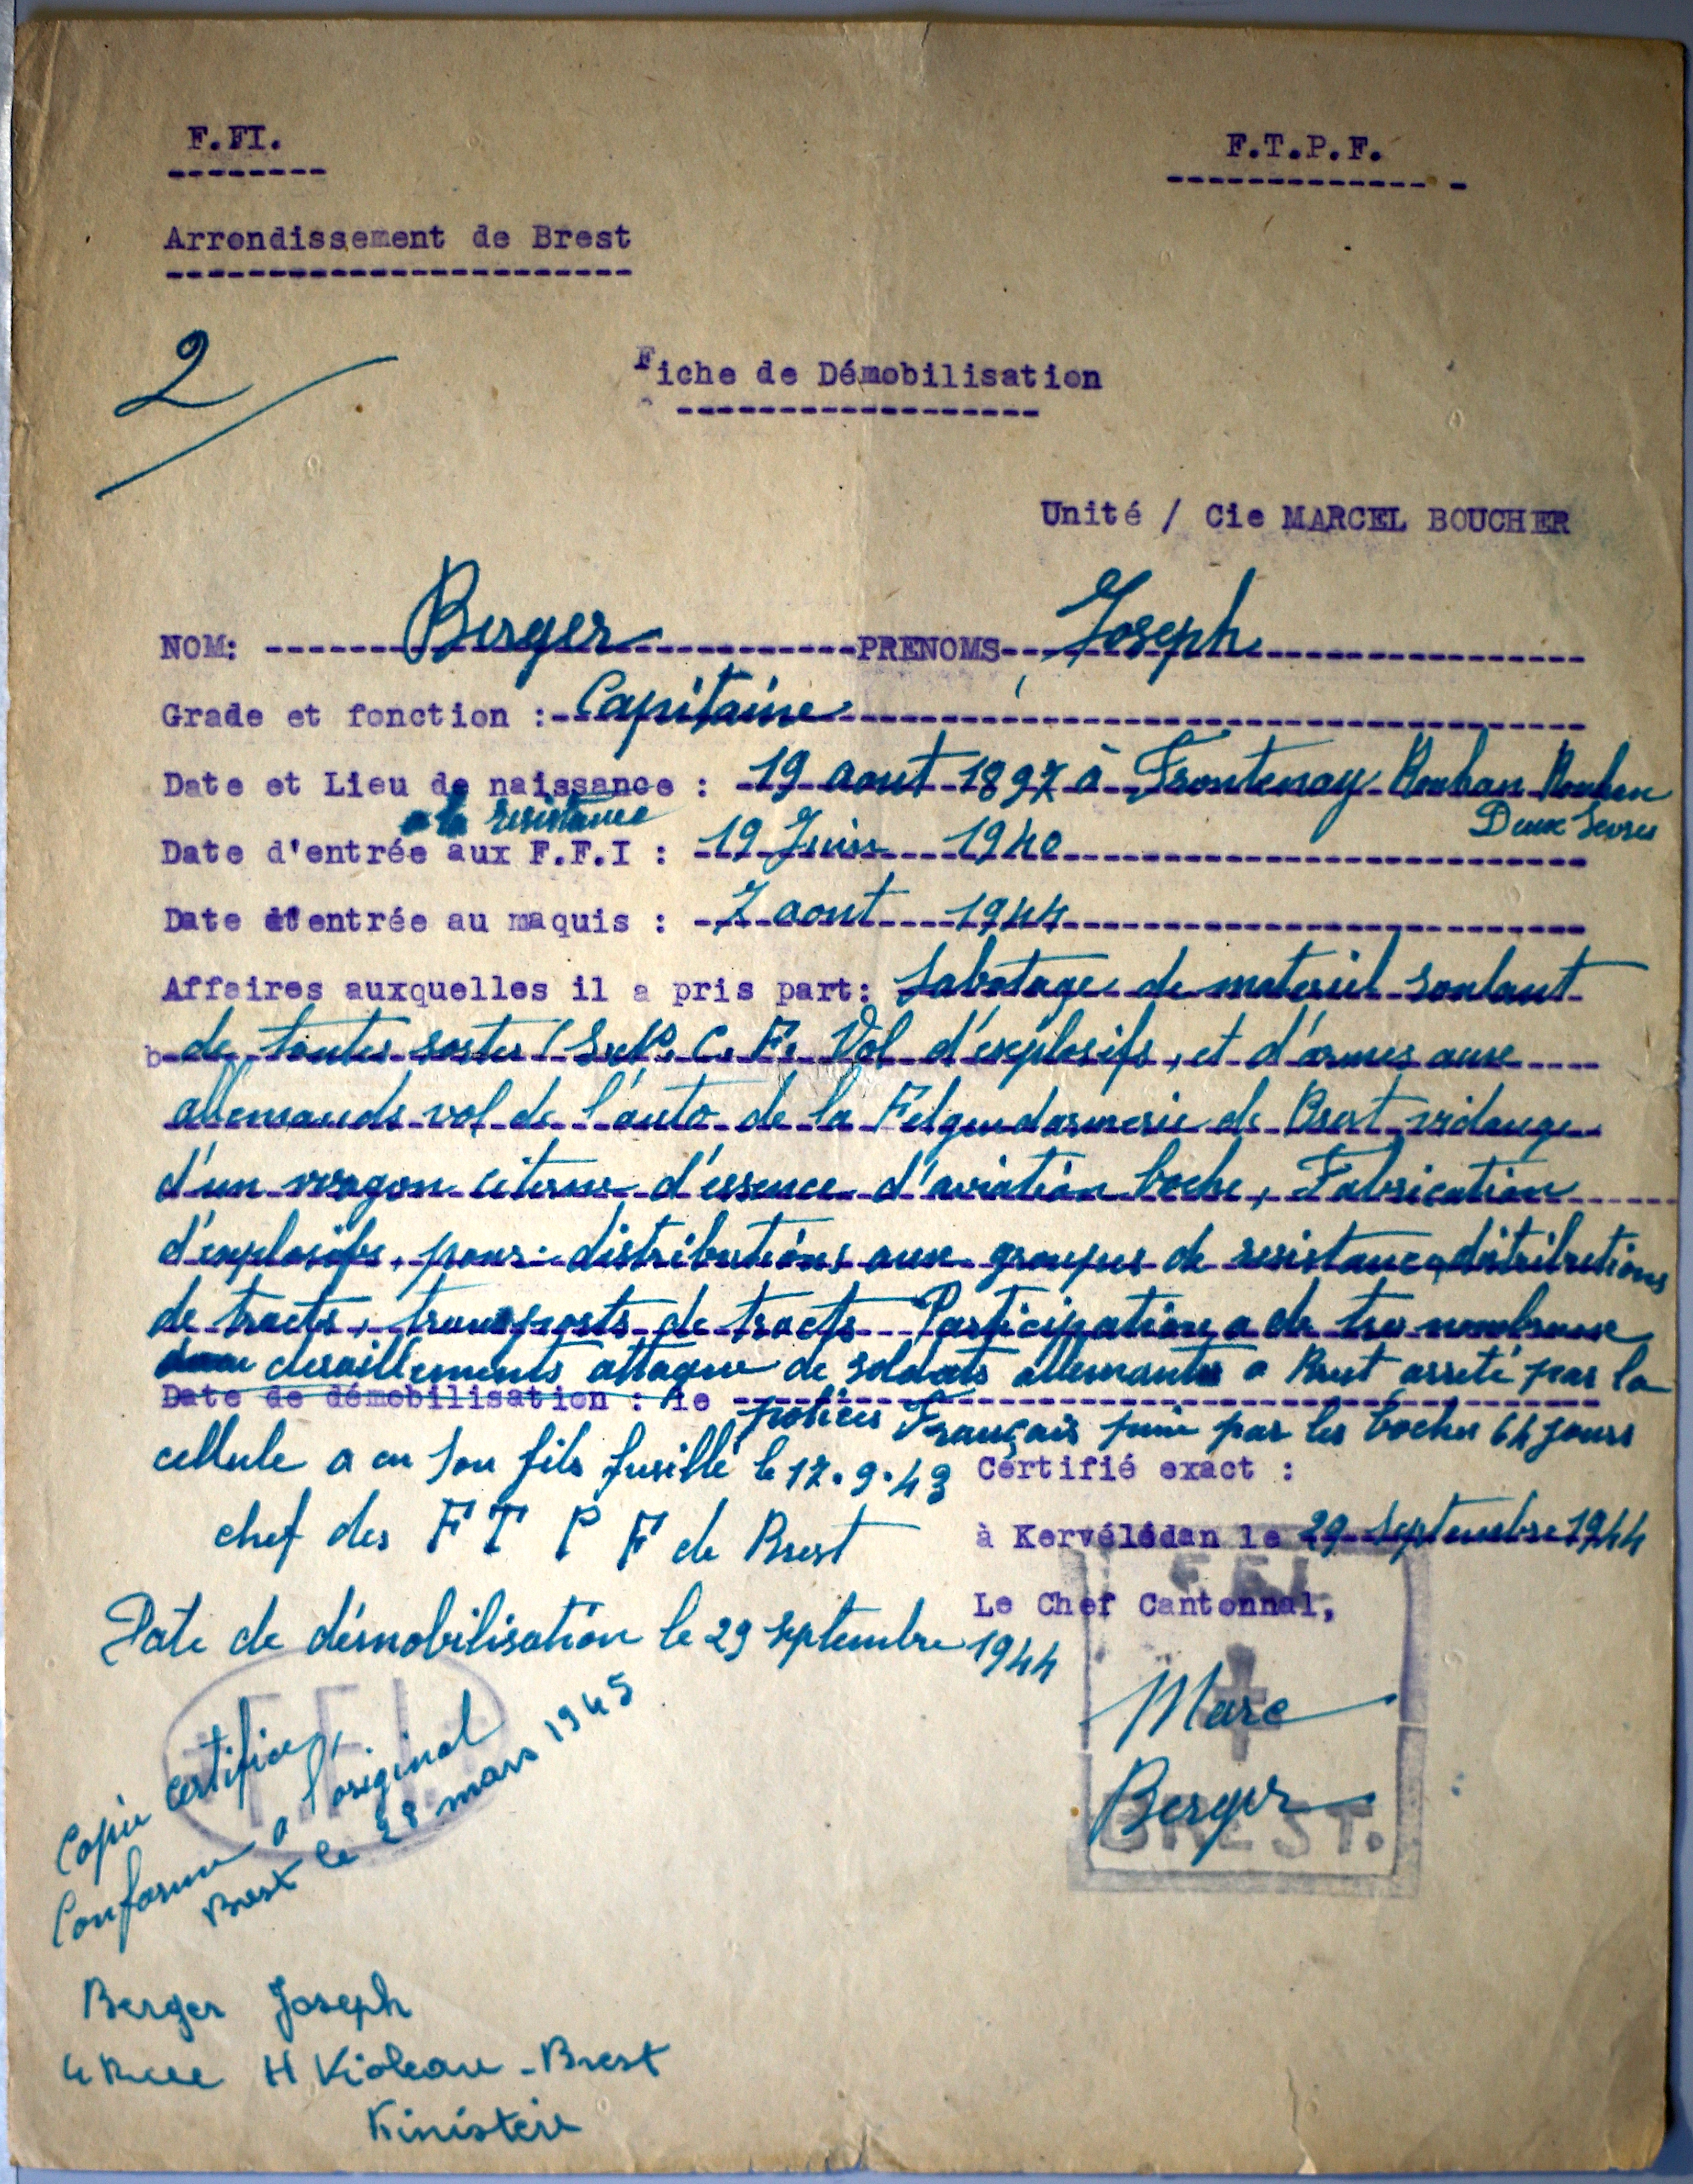 F.FI.
F.T.P.F.
Arrondissement de Brest
2
Fiche de Démobilisation
Unité / Cie MARCEL BOUCHER
NOM: Berger PRENOMS Joseph
Grade et fonction : Capitaine
Date et Lieu de naissance : 19 aout 1897 à Frontenay Rouhan Rouhan
Deux Sevres
a la resistance
Date d'entrée aux F.F.I : 19 Juin 1940
Date d'entrée au maquis : 7 aout 1944
Affaires auxquelles il a pris part: Sabotage de materiel roulant
de toutes sortes (S.N.C.F. Vol d'explosifs, et d'armes aux
allemands vol de l'auto de la Felgendarmerie de Brest vidange
d'un wagon citerne d'essence d'aviation boche, Fabrication
d'explosifs, pour distributions aux groupes de resistance, distributions
de tracts, transports de tracts Participation a de tres nombreux
deraillements attaque de soldats allemands a Brest arreté par la
Date de démobilisation : le
polices Français puni par les boches 64 jours
cellule a eu son fils fusillé le 17.9.43
Certifié exact :
chef des F T P F de Brest
à Kervélédan le 29 Septembre 1944
F.F.I.
Le Chef Cantonnal,
Date de démobilisation le 29 septembre 1944
Marc
Berger
BREST.
F.F.I.
Copie certifiée
Conforme a l'original
Brest le 28 mars 1945
Berger Joseph
4 Rue H Violeau - Brest
Finistère